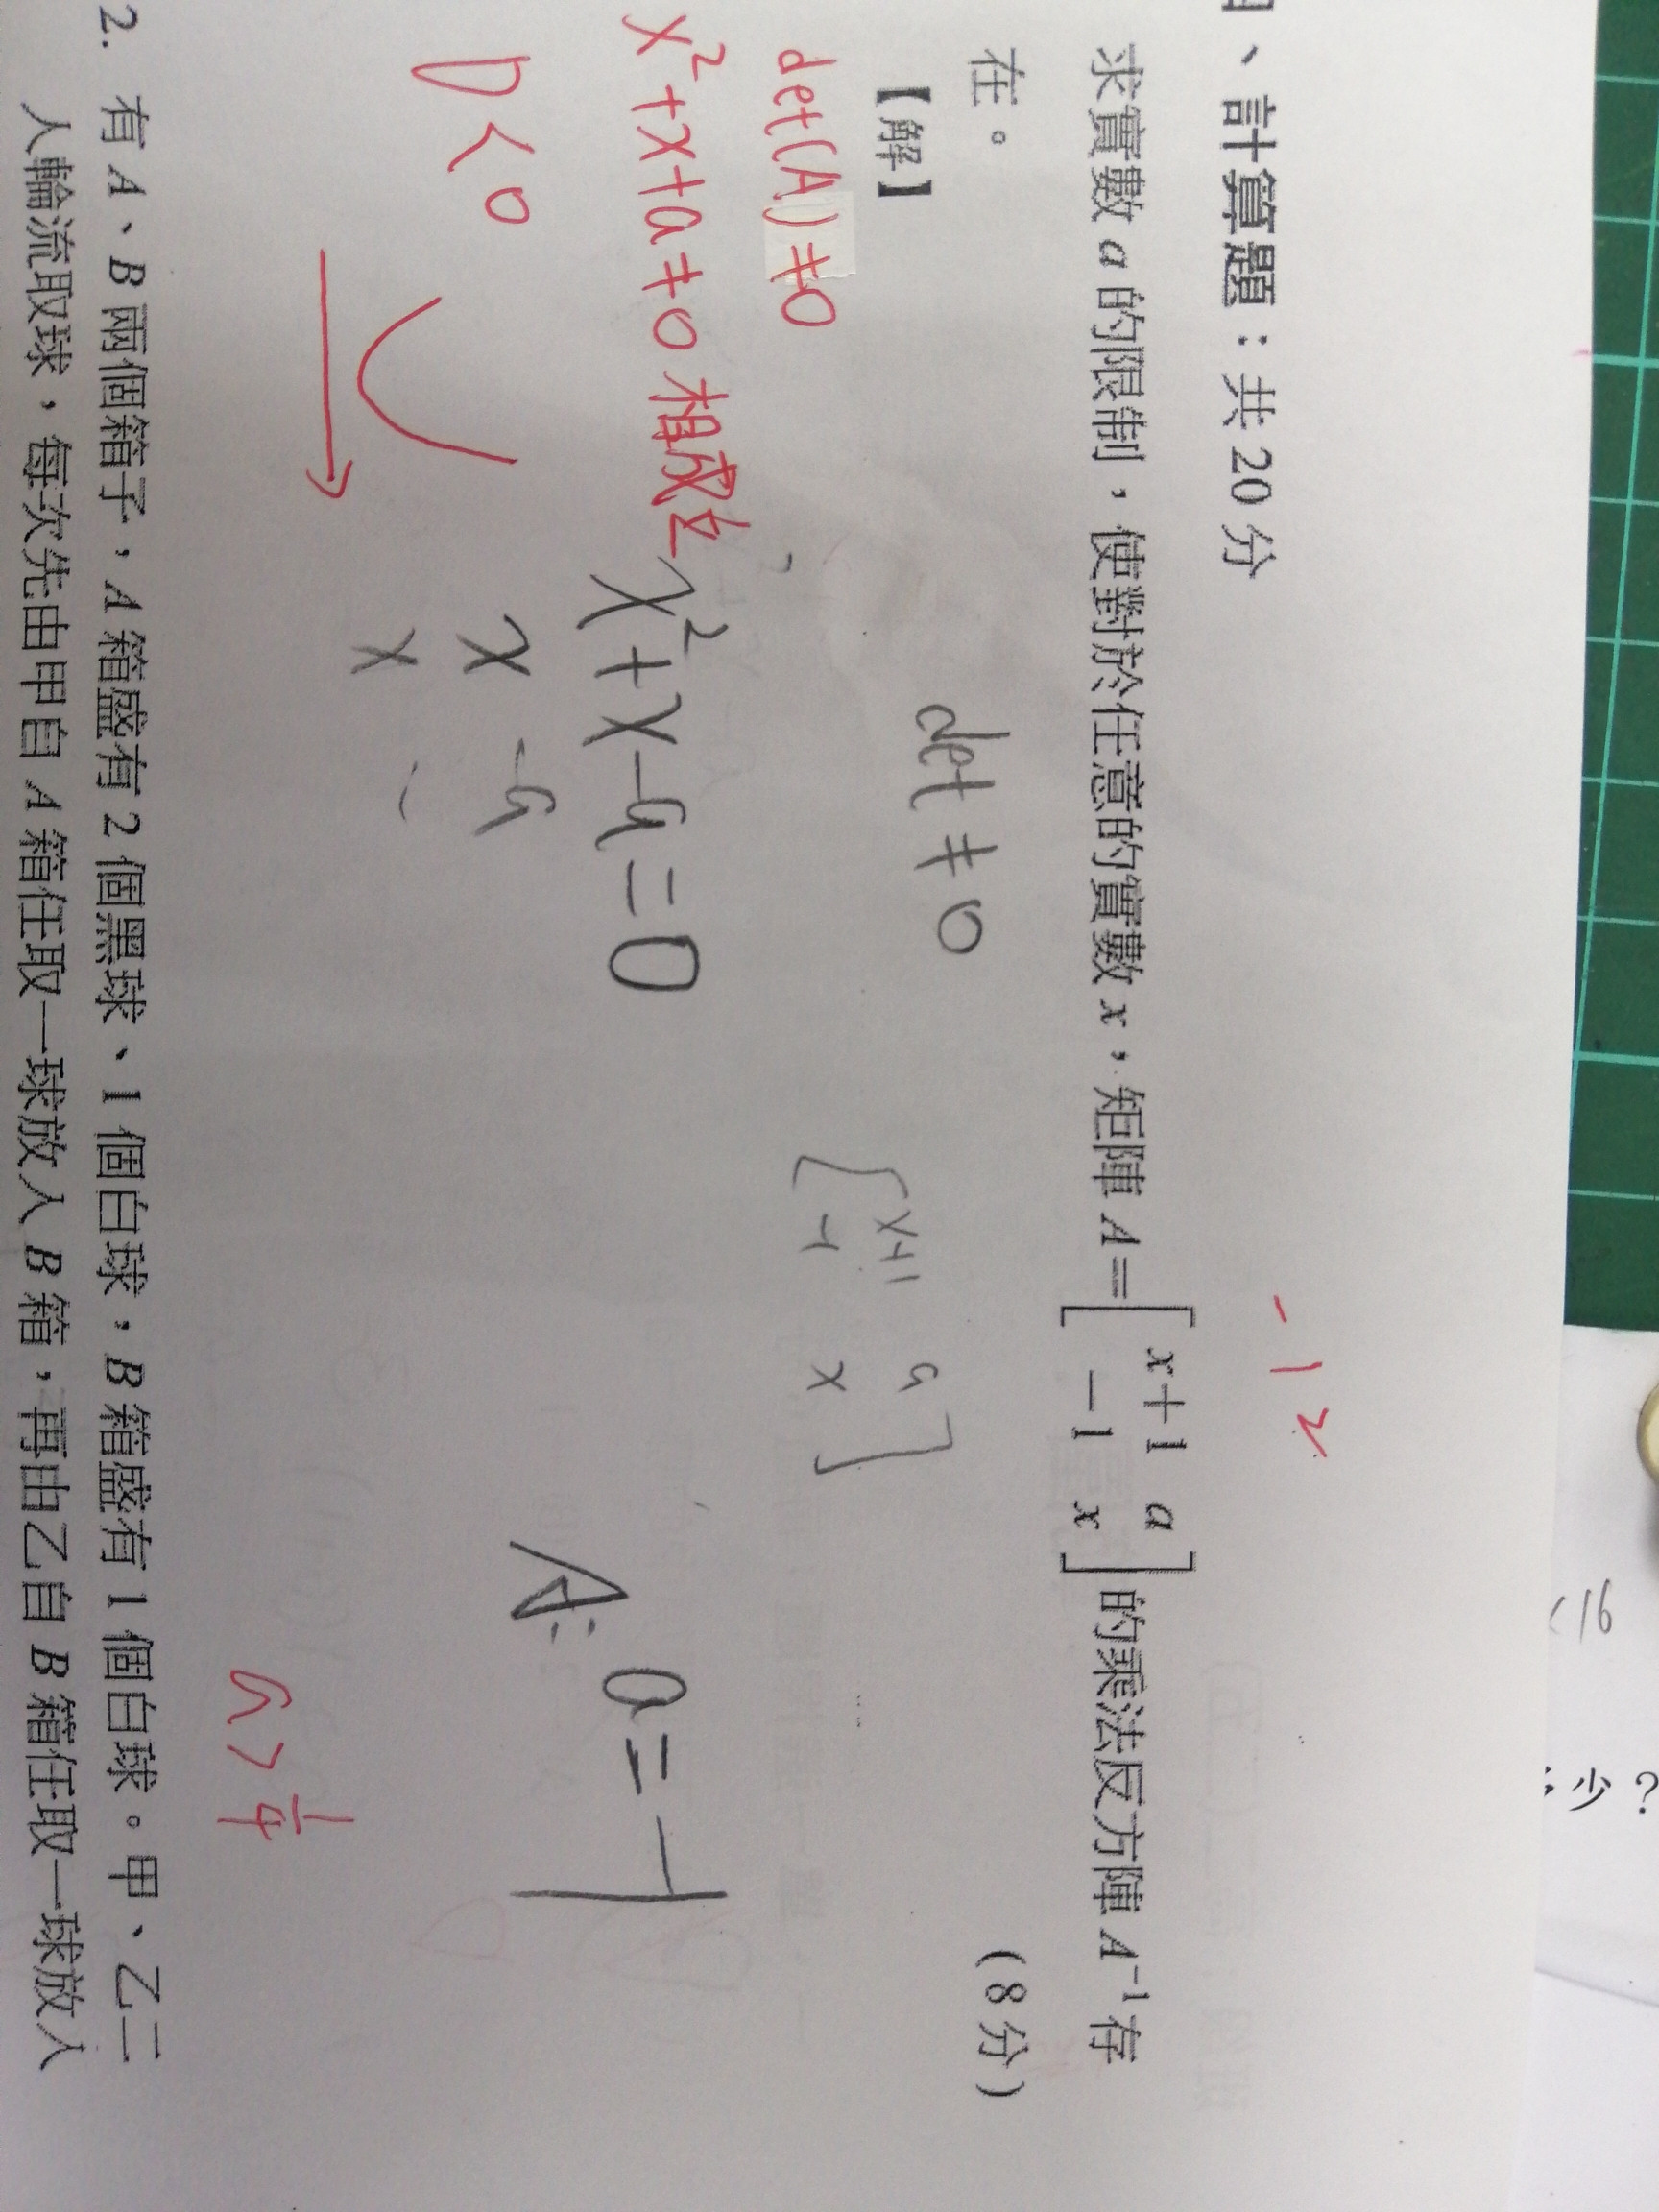 、計算題：共 20 分
-12
求實數 a 的限制，使對於任意的實數 x，矩陣 A = [ x+1 a
-1 x ] 的乘法反方陣 A⁻¹ 存
在。 (8 分)
【解】
det ≠ 0
det(A) ≠ 0
[ x+1 a
-1 x ]
x²+x+a≠0 相成立
x²+x-a=0
x -a
x
D<0
A: a=-1
a>1/4
2. 有 A、B 兩個箱子，A 箱盛有 2 個黑球、1 個白球，B 箱盛有 1 個白球。甲、乙二
人輪流取球，每次先由甲自 A 箱任取一球放入 B 箱，再由乙自 B 箱任取一球放入
<16
少？